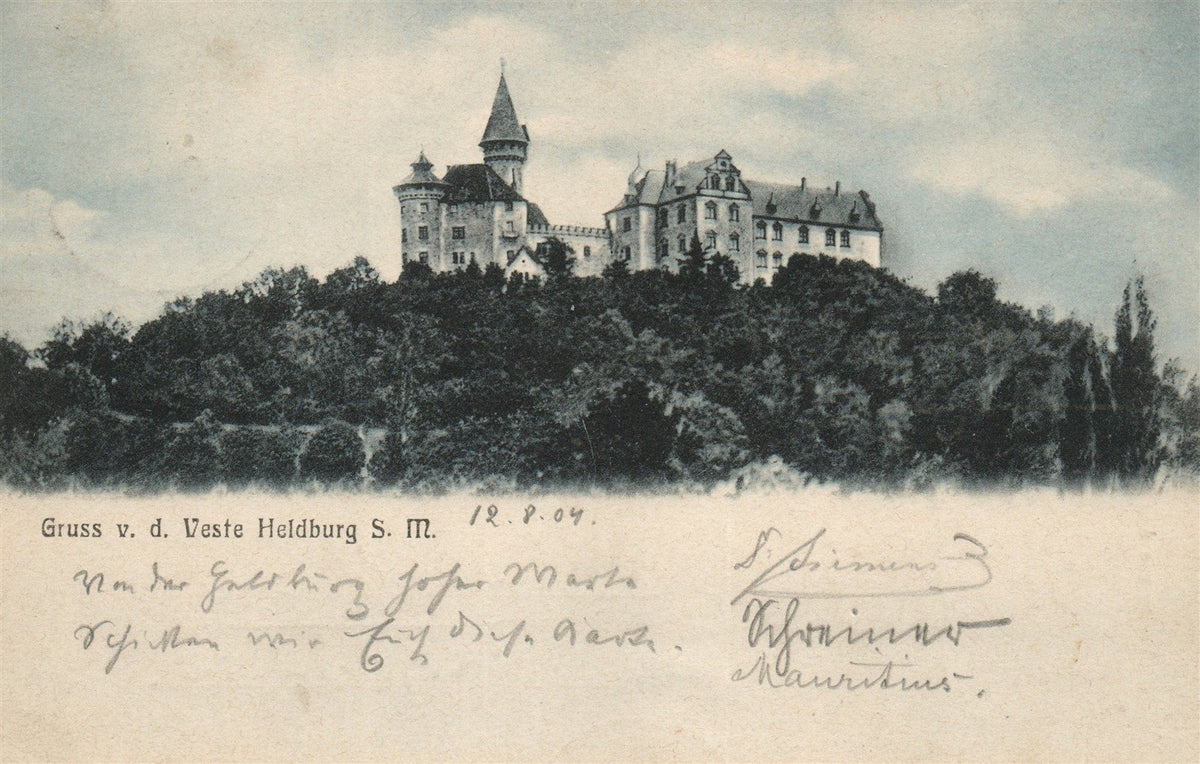 Gruss v. d. Veste Heldburg S. M.
12.8.04.
Von der Heldburg hoher Warte
Schicken wir Euch diese Karte.
Siemens
Schreiner
Mauritius.